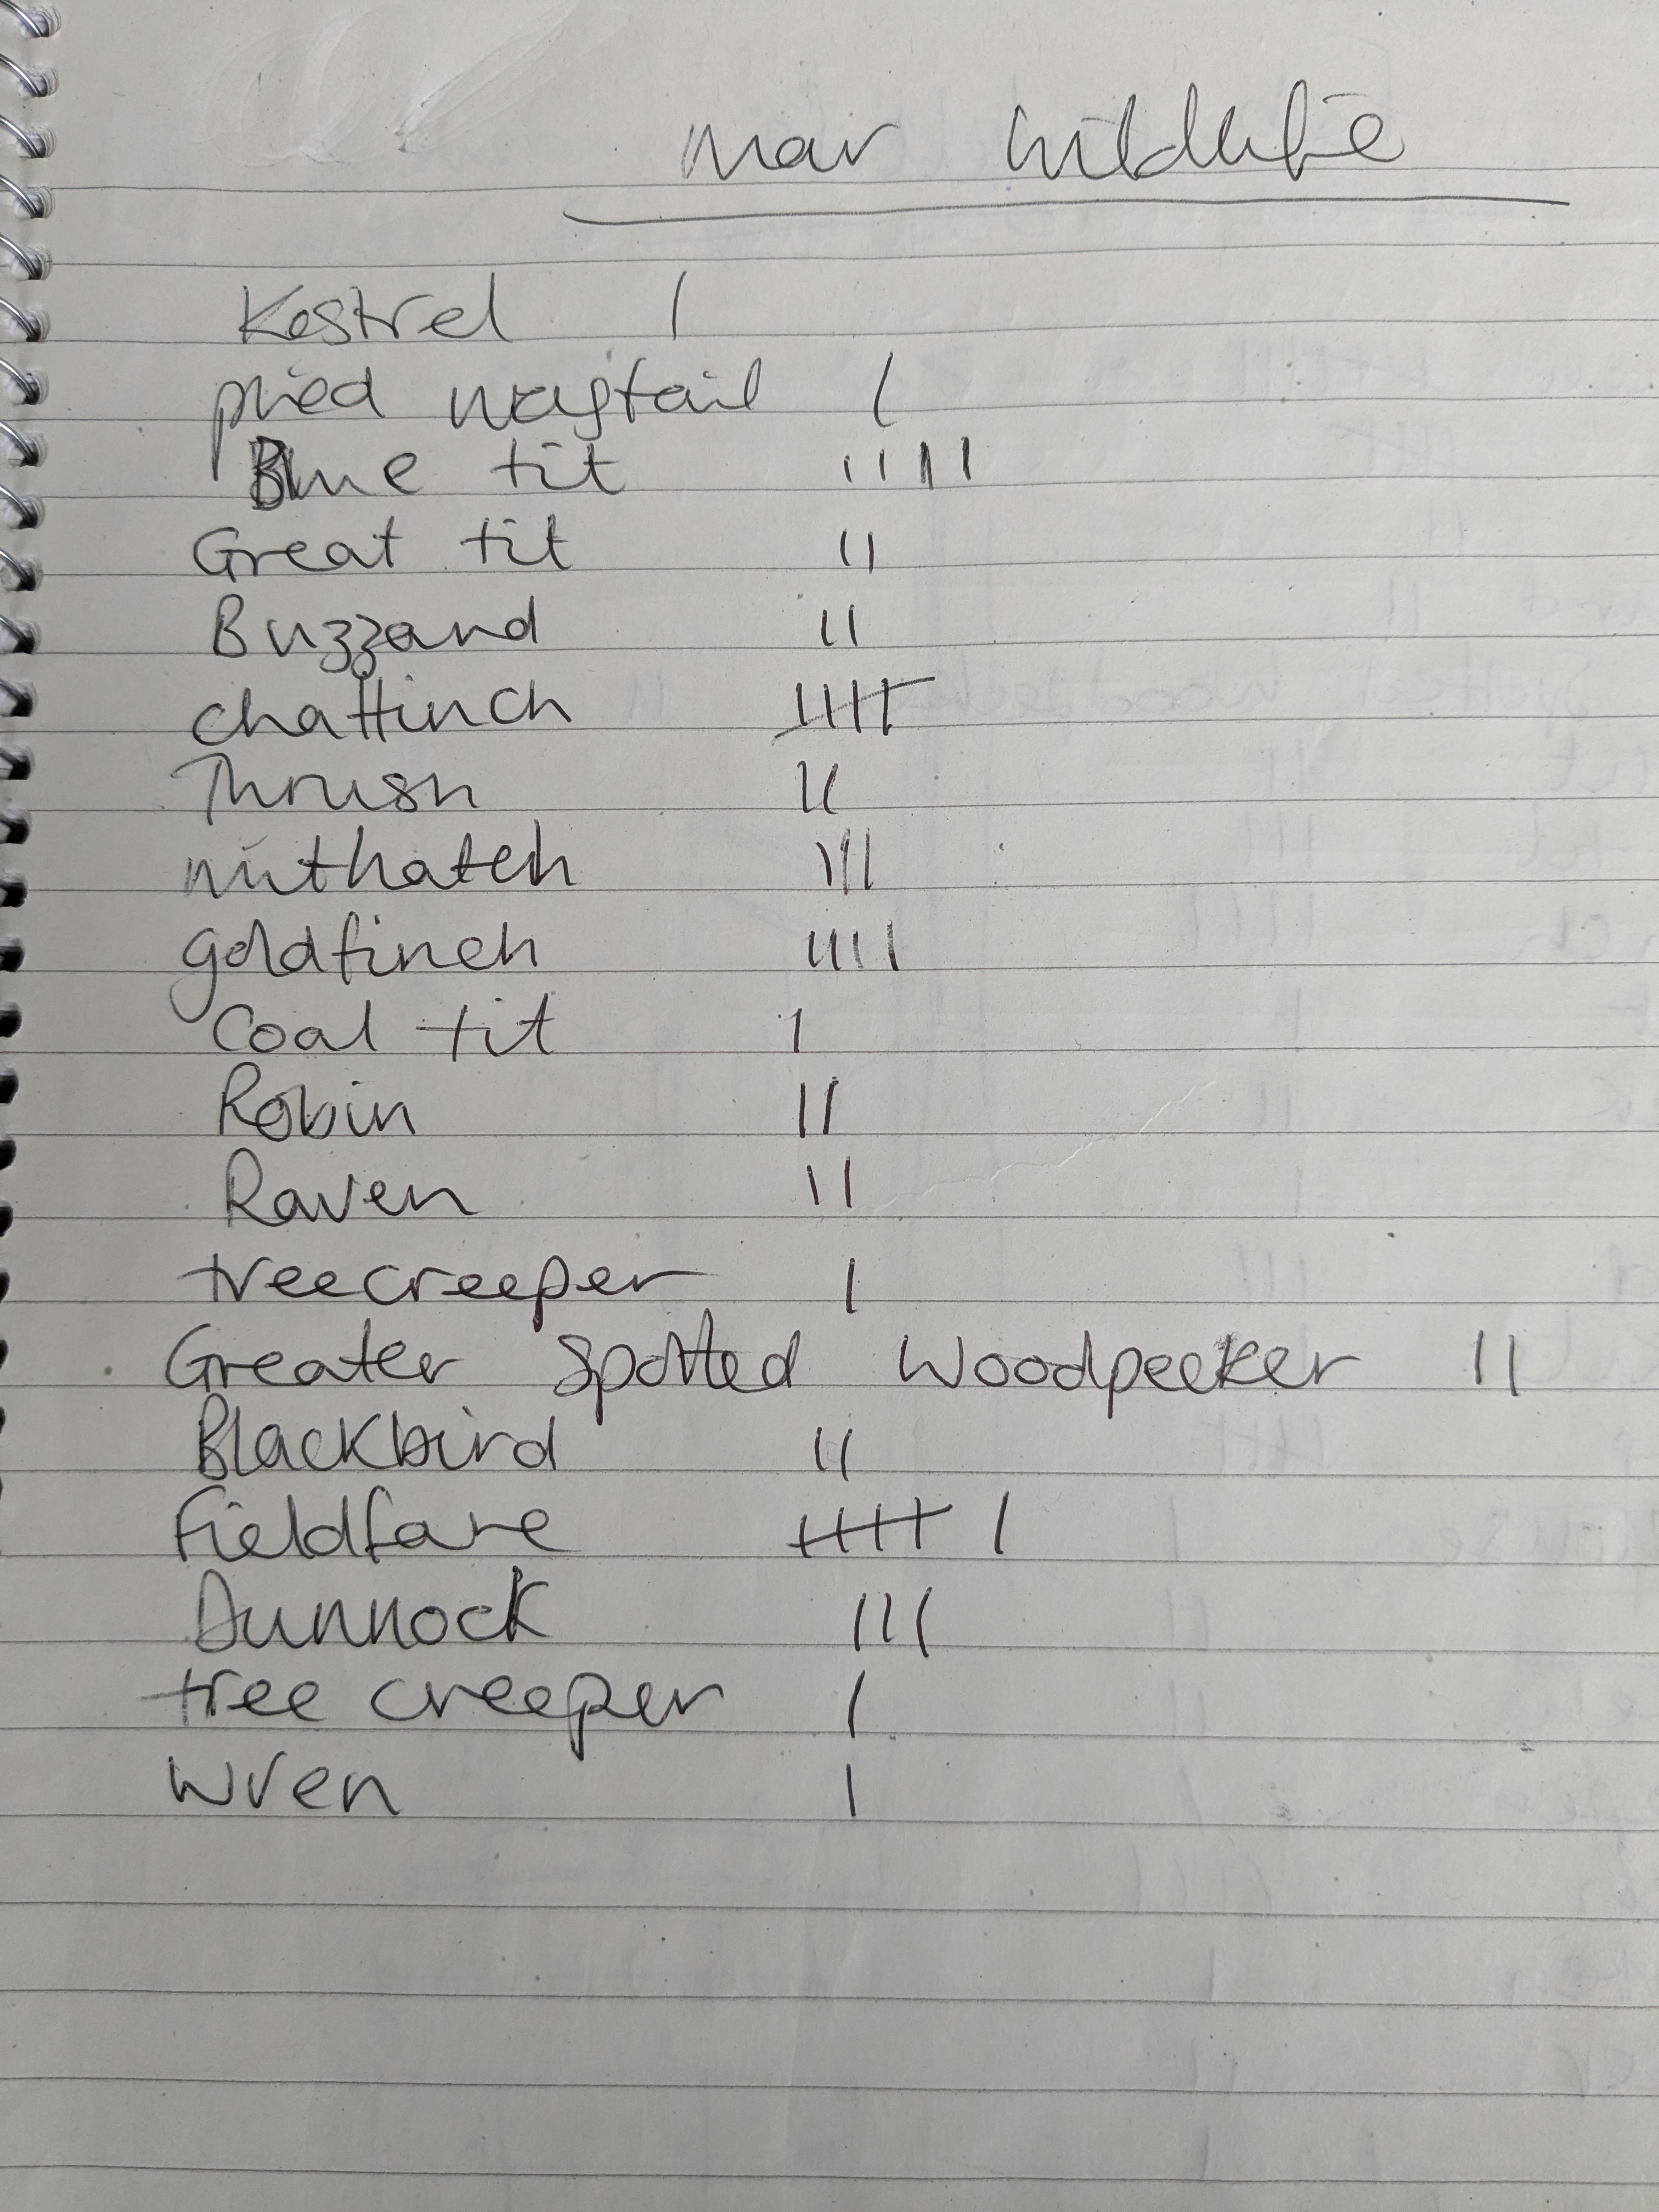 Mar Wildlife
Kestrel |
pied wagtail |
Blue tit ||||
Great tit ||
Buzzard ||
chaffinch 卌
Thrush ||
nuthatch |||
goldfinch ||||
Coal tit 1
Robin ||
Raven ||
treecreeper |
Greater Spotted Woodpecker ||
Blackbird ||
Fieldfare 卌 |
Dunnock |||
tree creeper |
Wren |